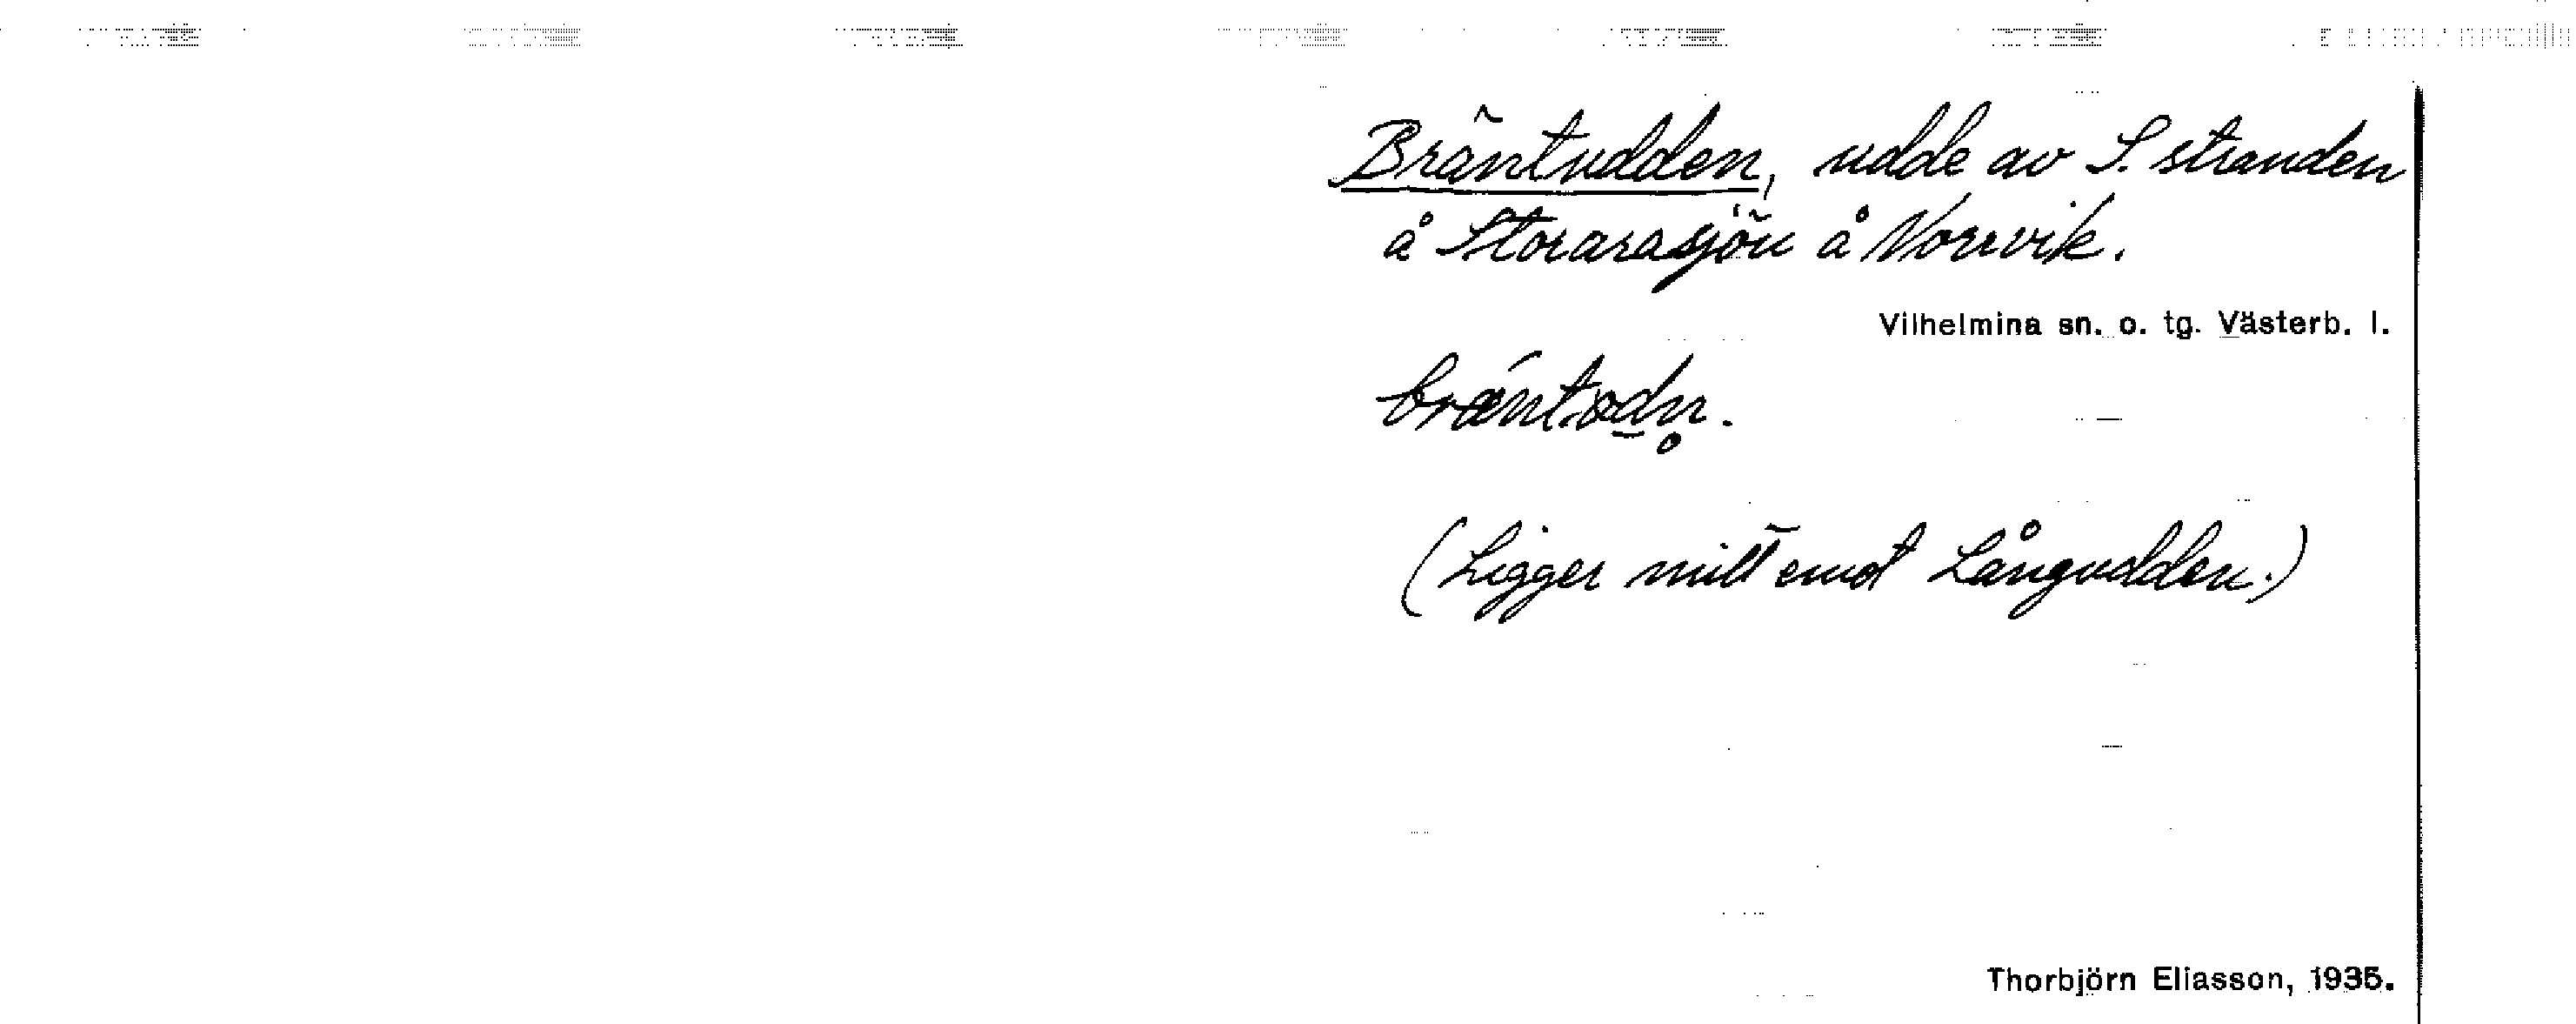 Bräntudden, udde av S. stranden
å Storarasjön å Norrvik.
Vilhelmina sn. o. tg. Västerb. l.
(Ligger mitt emot Långudden.)
Thorbjörn Eliasson, 1935.